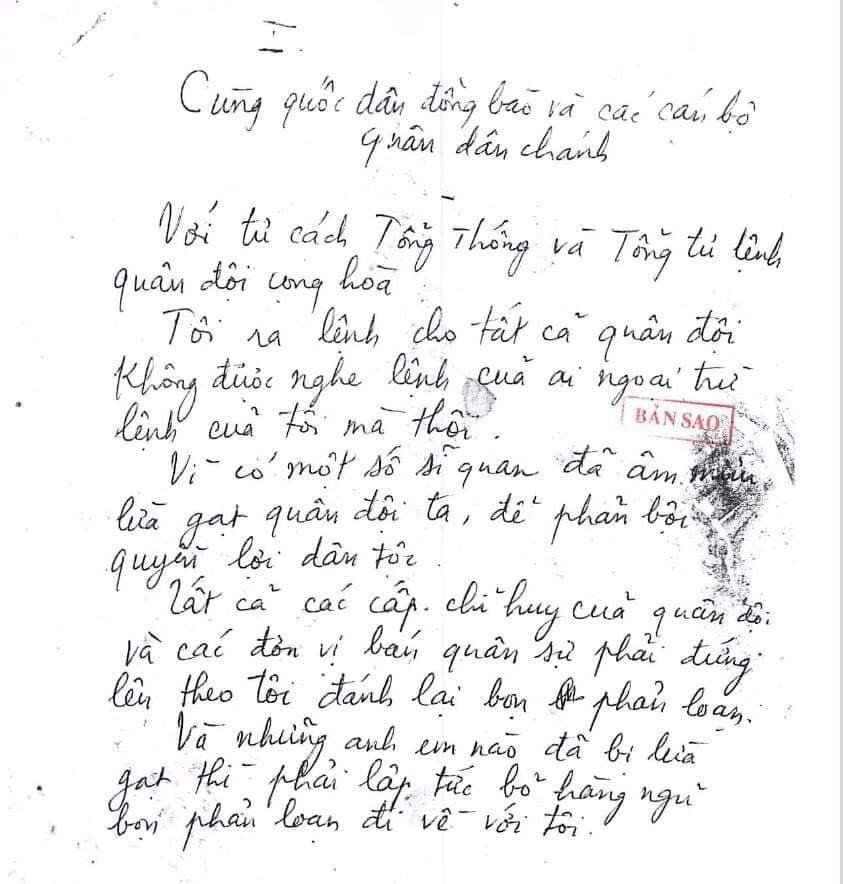 I.
Cùng quốc dân đồng bào và các cán bộ
quân dân chánh
Với tư cách Tổng Thống và Tổng tư lệnh
quân đội cộng hoà
Tôi ra lệnh cho tất cả quân đội
Không được nghe lệnh của ai ngoại trừ
lệnh của tôi mà thôi.
BẢN SAO
Vì có một số sĩ quan đã âm mưu
lừa gạt quân đội ta, để phản bội
quyền lợi dân tộc.
Tất cả các cấp chỉ huy của quân đội
và các đơn vị bán quân sự phải đứng
lên theo tôi đánh lại bọn phản loạn.
Và những anh em nào đã bị lừa
gạt thì phải lập tức bỏ hàng ngũ
bọn phản loạn đi về với tôi.